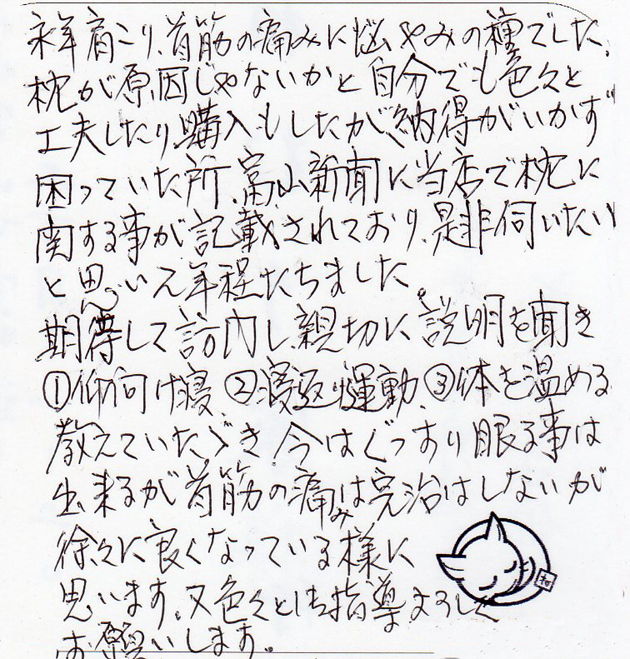 永年肩こり、首筋の痛みに悩やみの種でした。
枕が原因じゃないかと自分でも色々と
工夫したり、購入もしたが、納得がいかず
困っていた所、富山新聞に当店で枕に
関する事が記載されており、是非伺いたい
と思い2年程たちました。
期待して訪問し、親切に説明を聞き
①仰向け寝 ②寝返運動 ③体を温める
教えていただき 今はぐっすり眠る事は
出来るが首筋の痛みは完治はしないが
徐々に良くなっている様に
思います。又色々とご指導よろしく
お願いします。